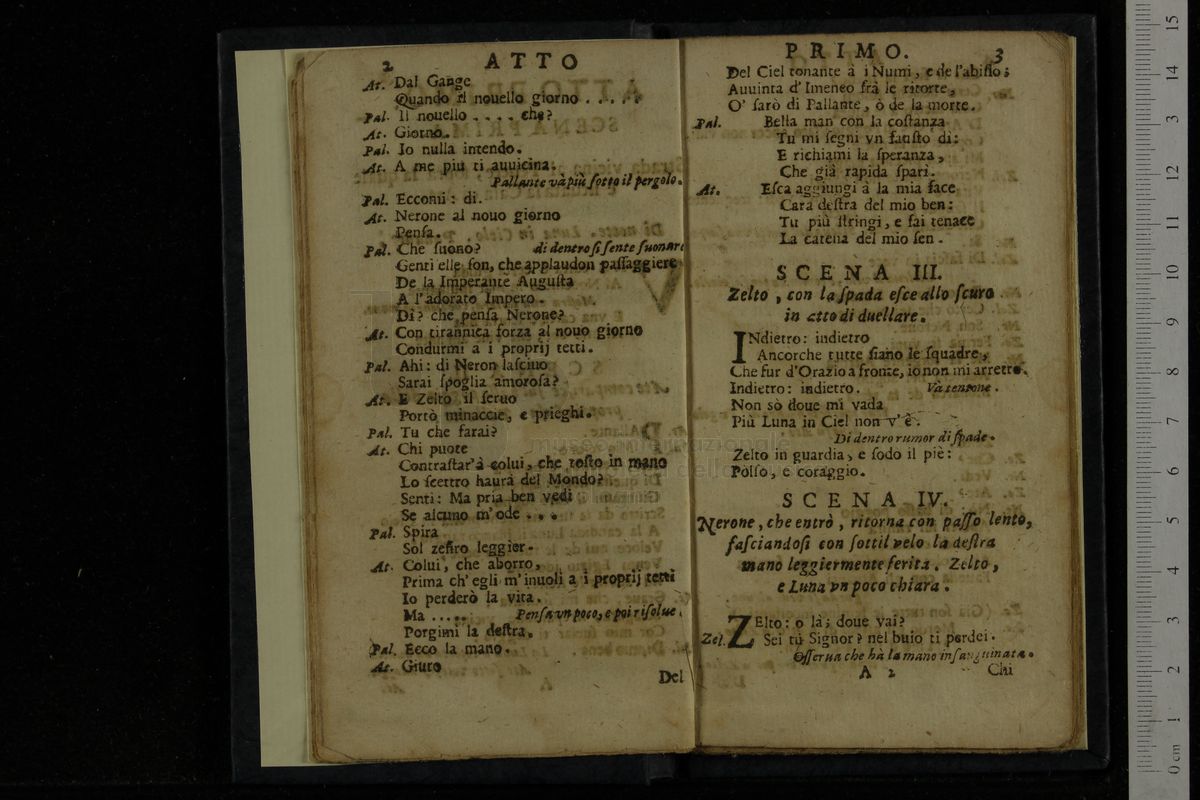 2 ATTO
At. Dal Gange
Quando il nouello giorno . . . . .
Pal. Il nouello . . . . che?
At. Giorno.
Pal. Io nulla intendo.
At. A me più ti auuicina.
Pallante và più ſotto il pergolo.
Pal. Eccomi: di.
At. Nerone al nouo giorno
Penſa.
Pal. Che ſuono? di dentro ſi ſente ſuonare
Genti elle ſon, che applaudon paſſaggiere
De la Imperante Auguſta
A l'adorato Impero.
Di? che penſa Nerone?
At. Con tirannica forza al nouo giorno
Condurmi a i proprij tetti.
Pal. Ahi: di Neron laſciuo
Sarai ſpoglia amoroſa?
At. E Zelto il ſeruo
Portò minaccie, e prieghi.
Pal. Tu che farai?
At. Chi puote
Contraſtar'à colui, che toſto in mano
Lo ſcettro haurà del Mondo?
Senti: Ma pria ben vedi
Se alcuno m'ode . . .
Pal. Spira
Sol zefiro leggier.
At. Colui, che aborro,
Prima ch'egli m'inuoli a i proprij tetti
Io perderò la vita.
Ma ..... Penſa vn poco, e poi riſolue.
Porgimi la deſtra.
Pal. Ecco la mano.
At. Giuro
Del
PRIMO. 3
Del Ciel tonante à i Numi, e de l'abiſſo;
Auuinta d'Imeneo frà le ritorte,
O' ſarò di Pallante, ò de la morte.
Pal. Bella man con la coſtanza
Tu mi ſegni vn fauſto dì:
E richiami la ſperanza,
Che già rapida ſparì.
At. Eſca aggiungi à la mia face
Cara deſtra del mio ben:
Tu più ſtringi, e fai tenace
La catena del mio ſen.
SCENA III.
Zelto, con la ſpada eſce allo ſcuro
in atto di duellare.
INdietro: indietro
Ancorche tutte ſiano le ſquadre,
Che fur d'Orazio a fronte, io non mi arretro.
Indietro: indietro. Và tentone.
Non sò doue mi vada
Più Luna in Ciel non v'è.
Di dentro rumor di ſpade.
Zelto in guardia, e ſodo il piè:
Polſo, e coraggio.
SCENA IV.
Nerone, che entrò, ritorna con paſſo lento,
faſciandoſi con ſottil velo la deſtra
mano leggiermente ferita. Zelto,
e Luna vn poco chiara.
ZElto: o là; doue vai?
Zel. Sei tù Signor? nel buio ti perdei.
Oſſerua che hà la mano inſanguinata.
A 2 Chi